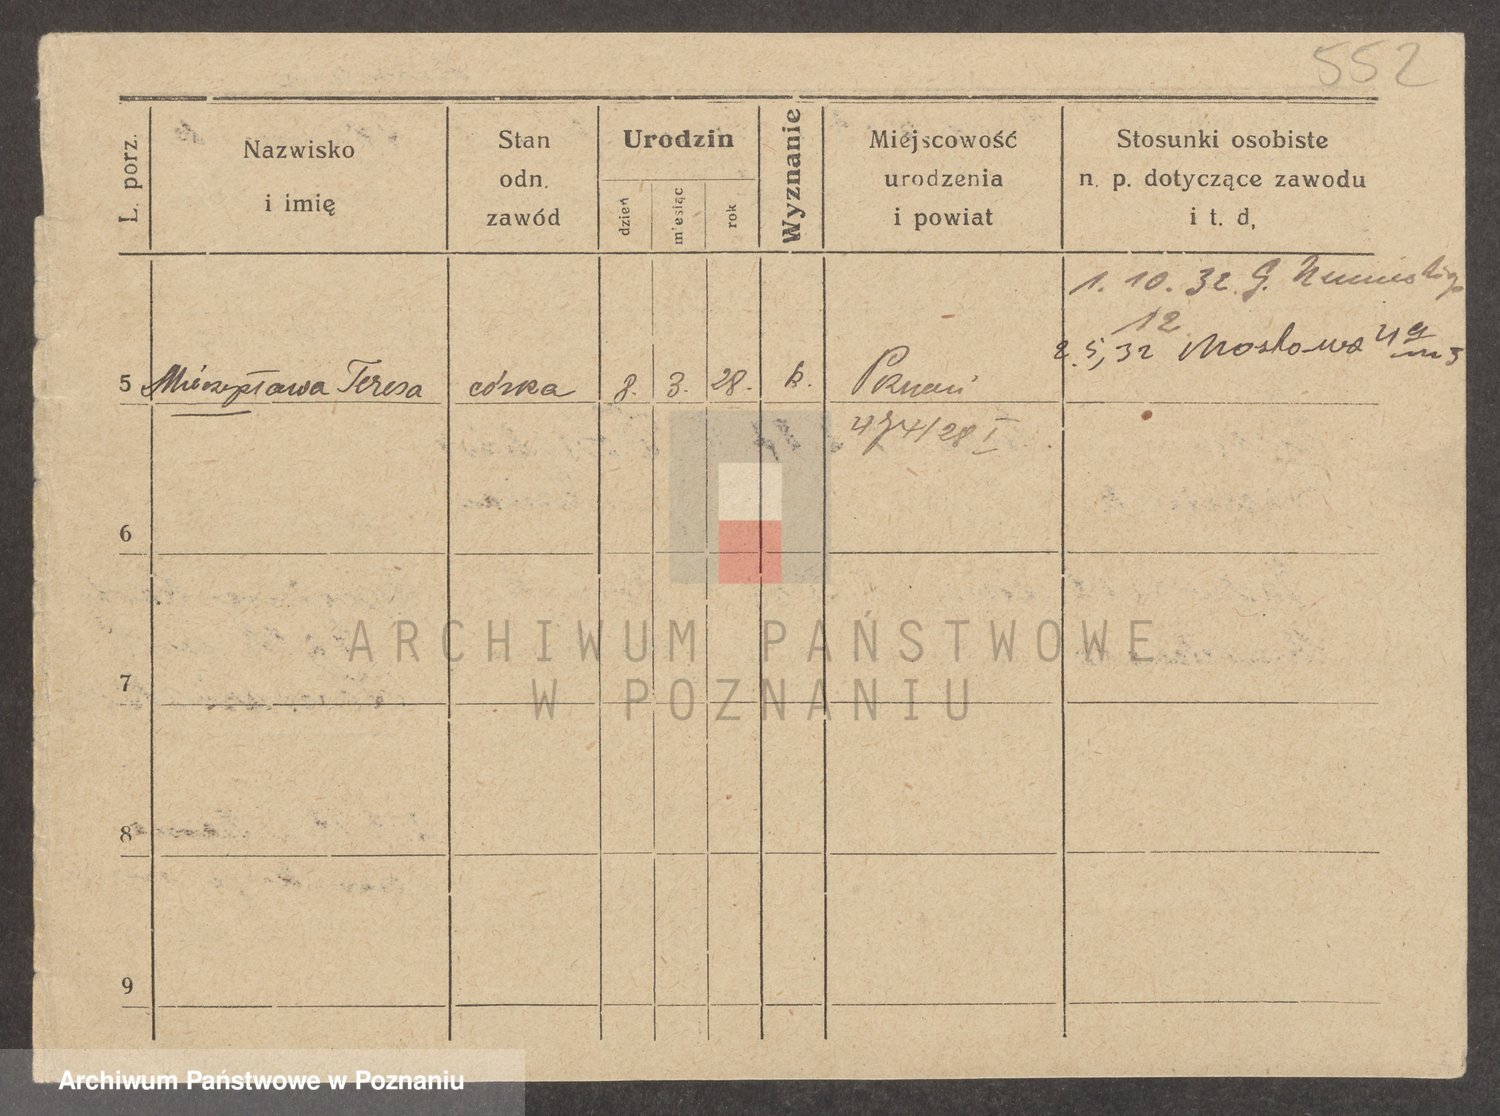 552
L. porz.
Nazwisko
i imię
Stan
odn.
zawód
Urodzin
dzień
miesiąc
rok
Wyznanie
Miejscowość
urodzenia
i powiat
Stosunki osobiste
n. p. dotyczące zawodu
i t. d,
1. 10. 32 G.
12
2. 5, 32 Mostowa
5 Mieczysława Teresa córka 8. 3. 28. k. Poznań
474/28 I
6
7
8
9
ARCHIWUM PAŃSTWOWE
W POZNANIU
Archiwum Państwowe w Poznaniu